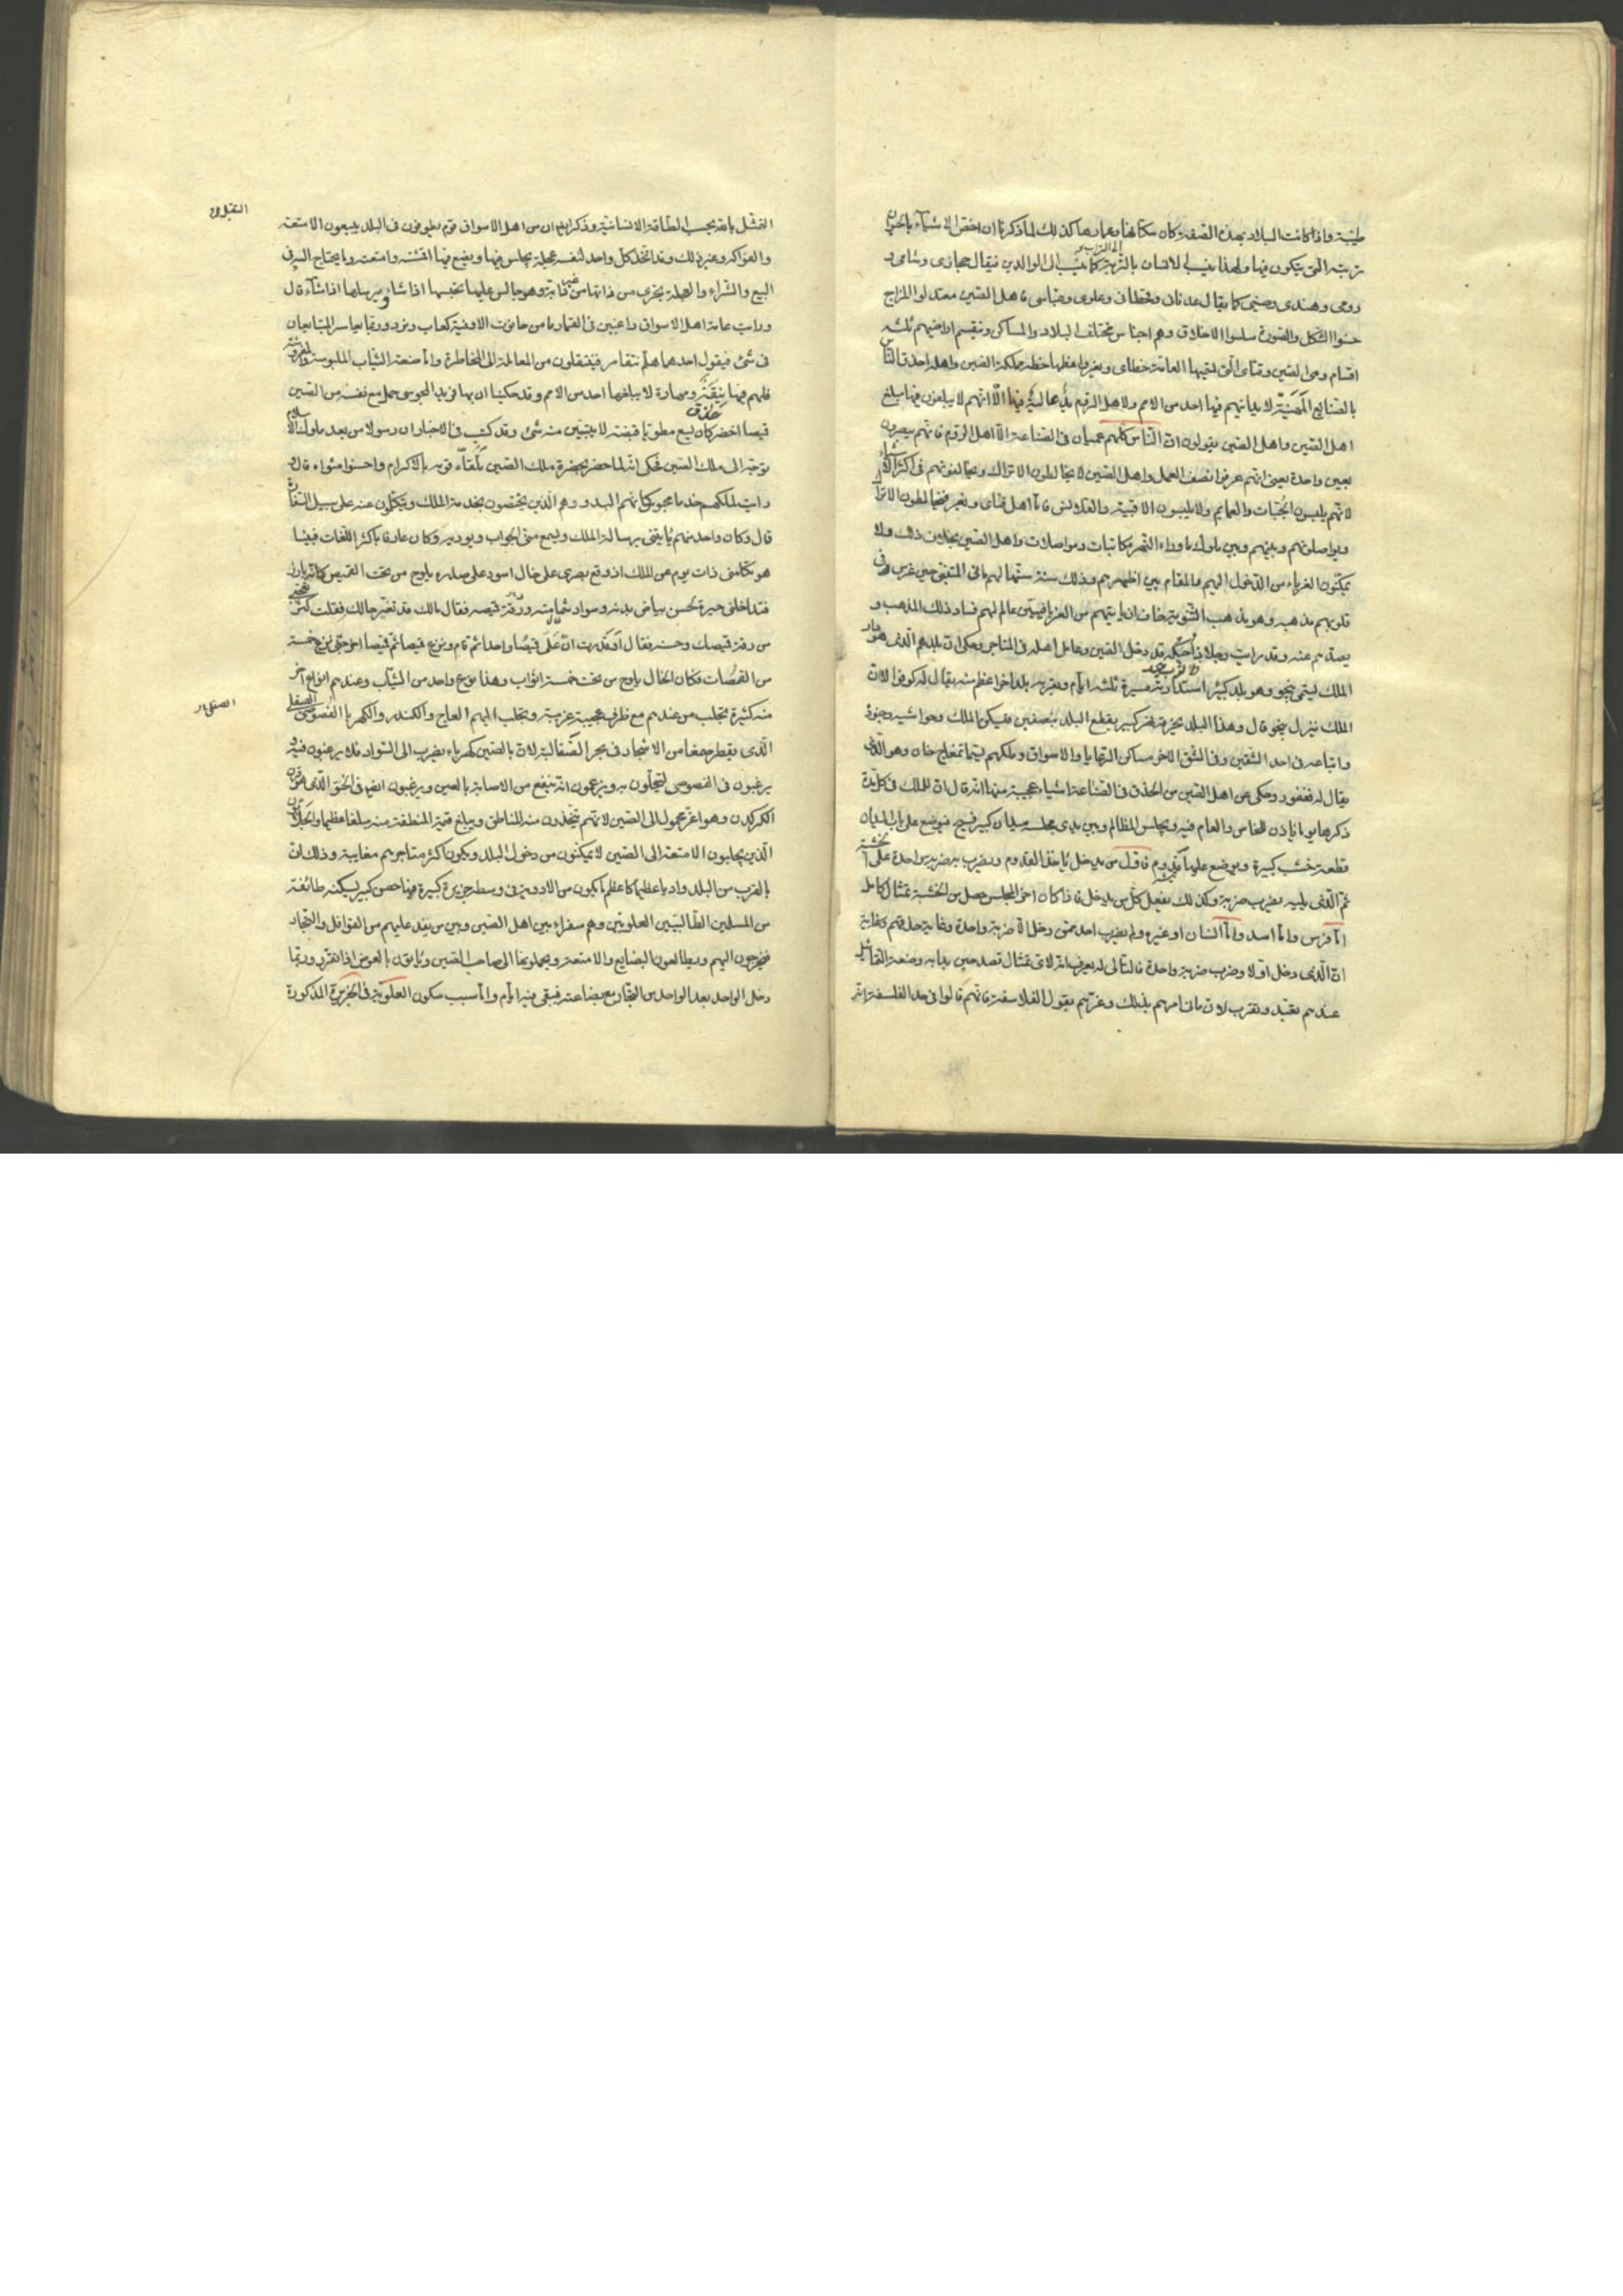 طيبة واذا كانت البلاد بهذه الصفة كان سكانها وعمارها كذلك لما ذكرنا ان اخص الاشياء بالحيوان
تربته التى يتكون فيها ولهذا ينسب الانسان بالتربة كما ينسب الى الوالدين فيقال حجازى وشامى و
رومى وهندى وصينى كما يقال عدنان وقحطان وعلوى وعباسى فاهل الصين معتدلوا المزاج
حسنوا الشكل والصورة سلسوا الاخلاق وهم اجناس مختلف البلاد والمساكن وتنقسم اراضيهم ثلثة
اقسام وهى الصين وقتاى التى تسميها العامة خطاى ويغر واعظمها خطة مملكة الصين واهله احذق الناس
بالصنايع المهنية لا يدانيهم فيها احد من الامم ولاهل الروم يد عالية فيها الا انهم لا يبلغون فيها مبلغ
اهل الصين واهل الصين يقولون ان الناس كلهم عميان فى الصناعة الا اهل الروم فانهم يبصرون
بعين واحدة يعنى انهم عرفوا نصف العمل واهل الصين لا يخالطون الاتراك ويخالفونهم فى اكثر الاشياء
لانهم يلبسون الجبات والعمايم ولا يلبسون الاقبية والقلانس فاما اهل قتاى ويغر فيخالطون الاتراك
ويواصلونهم وبينهم وبين ملوك ما وراء النهر مكاتبات ومواصلات واهل الصين بخلاف ذلك ولا
يمكنون الغرباء من الدخول اليهم والمقام بين اظهرهم وذلك سنة سنها لهم مانى المتنبى حين غرس فى
قلوبهم مذهبه وهو مذهب الثنوية خاف ان ياتيهم من الغرباء فيبين عالم لهم فساد ذلك المذهب و
يصدهم عنه وقد رايت رجلا قد دخل الصين وعامل اهله فى المتاجر وحكى ان بلدهم الذى هو دار
الملك ليتمى ينجو وهو بلد كبير استدارته مسيرة ثلثة ايام وبقربه بلد اخر اعظم منه يقال له كوفوا الا ان
الملك ينزل ينجو قال وهذا البلد يخرقه نهر كبير يقطع البلد بنصفين فيسكن الملك وحواشيه وجنوده
واتباعه فى احد الشقين وفى الشق الاخر مساكن الرعايا والاسواق وملكهم يسمى تمغاج خان وهو الذى
يقال له فغفور وحكى عن اهل الصين من الحذق فى الصناعة اشياء عجيبة منها انه قال ان للملك فى كل مدة
ذكرها يوما ياذن للخاص والعام فيه ويجلس المظالم وبين يدى مجلسه ميدان كبير فسيح فيوضع على باب الميدان
قطعة خشب كبيرة ويوضع عليها قدوم فاول من يدخل ياخذ القدوم ويضرب به ضربة واحدة على الخشبة
ثم الذى يليه يضرب ضربة وكذلك يفعل كل من يدخل فاذا كان اخر المجلس حصل من الخشبة تمثال كامل
اما فرس واما اسد واما انسان او غيره ولم يضرب احد متى دخل الا ضربة واحدة
ان الذى دخل اولا وضرب ضربة واحدة فالتالى له يعرف انه لاى تمثال قصد حين بدا به وصنعة التماثيل
عندهم تعبد وتقرب لان مانى امرهم بذلك وغرهم بقول الفلاسفة فانهم قالوا فى حد الفلسفة انه
التقبل بالله بحسب الطاقة الانسانية وذكر ايضا ان من اهل الاسواق قوم يطوفون فى البلد يبيعون الامتعة
والفواكه وغير ذلك وقد اتخذ كل واحد لنفسه عجلة يجلس فيها ويضع فيها اقمشته وامتعته وما يحتاج اليه فى
البيع والشراء والعجلة تجرى من ذاتها من غير دابة وهو جالس عليها يحبسها اذا شاء ويرسلها اذا شاء قال
ورايت عامة اهل الاسواق راغبين فى القمار
فى شئ فيقول احدهما هلم نتقامر فينتقلون من المعاملة الى المخاطرة واما صنعة الثياب الملبوسة
فلهم فيها نيقة ومهارة لا يبلغها احد من الامم وقد حكينا ان بهافريد المجوسى حمل مع نفسه من الصين
قميصا اخضر كان يسع مطويا قبضته لا يتبين منه شئ وقد كتب فى الاخبار ان رسولا من بعد ملوك الاسلام
توجه الى ملك الصين فحكى انه لما حضر بحضرة ملك الصين تلقاه قومه بالاكرام واحسنوا مثواه قال و
رايت لملكهم خدما محبوبين كانهم البدور وهم الذين يختصون بخدمة الملك ويتكلمون عنه على سبيل السفارة
قال وكان واحد منهم ياتينى برسالة الملك ويسمع منى الجواب ويوديه وكان عارفا باكثر اللغات فبينا
هو يكلمنى ذات يوم عن الملك اذ وقع بصرى على خال اسود على صدره يلوح من تحت القميص كانه بارز
فتداخلنى حيرة لحسن بياض بدنه وسواد شامته ورقة قميصه فقال مالك قد تغير حالك فقلت
من رقة قميصك وحسنه فقال اوقدرت ان على قميصا واحدا ثم قام ونزع قميصا ثم قميصا اخر حتى نزع خمسة
من القمصان فكان الخال يلوح من تحت خمسة اثواب وهذا نوع واحد من الثياب وعندهم انواع اخر
منه كثيرة يجلب من عندهم مع ظرف عجيبة غريبة ويجلب اليهم العاج والكندر والكهربا الفصوصى الصقلبى
الذى يقطر صمغا من الاشجار فى بحر الصقالبة لان بالصين كهرباء يضرب الى السواد فلا يرغبون فيه و
يرغبون فى الفصوصى لتجملون به ويزعمون انه ينفع من الاصابة بالعين ويرغبون ايضا فى الختو الذى هو قرن
الكركدن وهو اعز محمول الى الصين لانهم يتخذون منه المناطق ويبلغ قيمة المنطقة منه مبلغا عظيما والتجار
الذين يجلبون الامتعة الى الصين لا يمكنون من دخول البلد ويكون اكثر متاجرهم مغايبة وذلك ان
بالقرب من البلد واديا عظيما كاعظم ما يكون من الاودية وفى وسطه جزيرة كبيرة فيها حصن كبير يسكنه طائفة
من المسلمين الطالبيين العلويين وهم سفراء بين اهل الصين وبين من يفد عليهم من القوافل والتجار
فيخرجون اليهم ويطالعون البضايع والامتعة ويحملونها الى صاحب الصين وياتون بالعوض اذا تقرر وربما
دخل الواحد بعد الواحد من التجار مع بضاعته فيبقى فيه ايام واما سبب سكون العلوية فى الجزيرة المذكورة